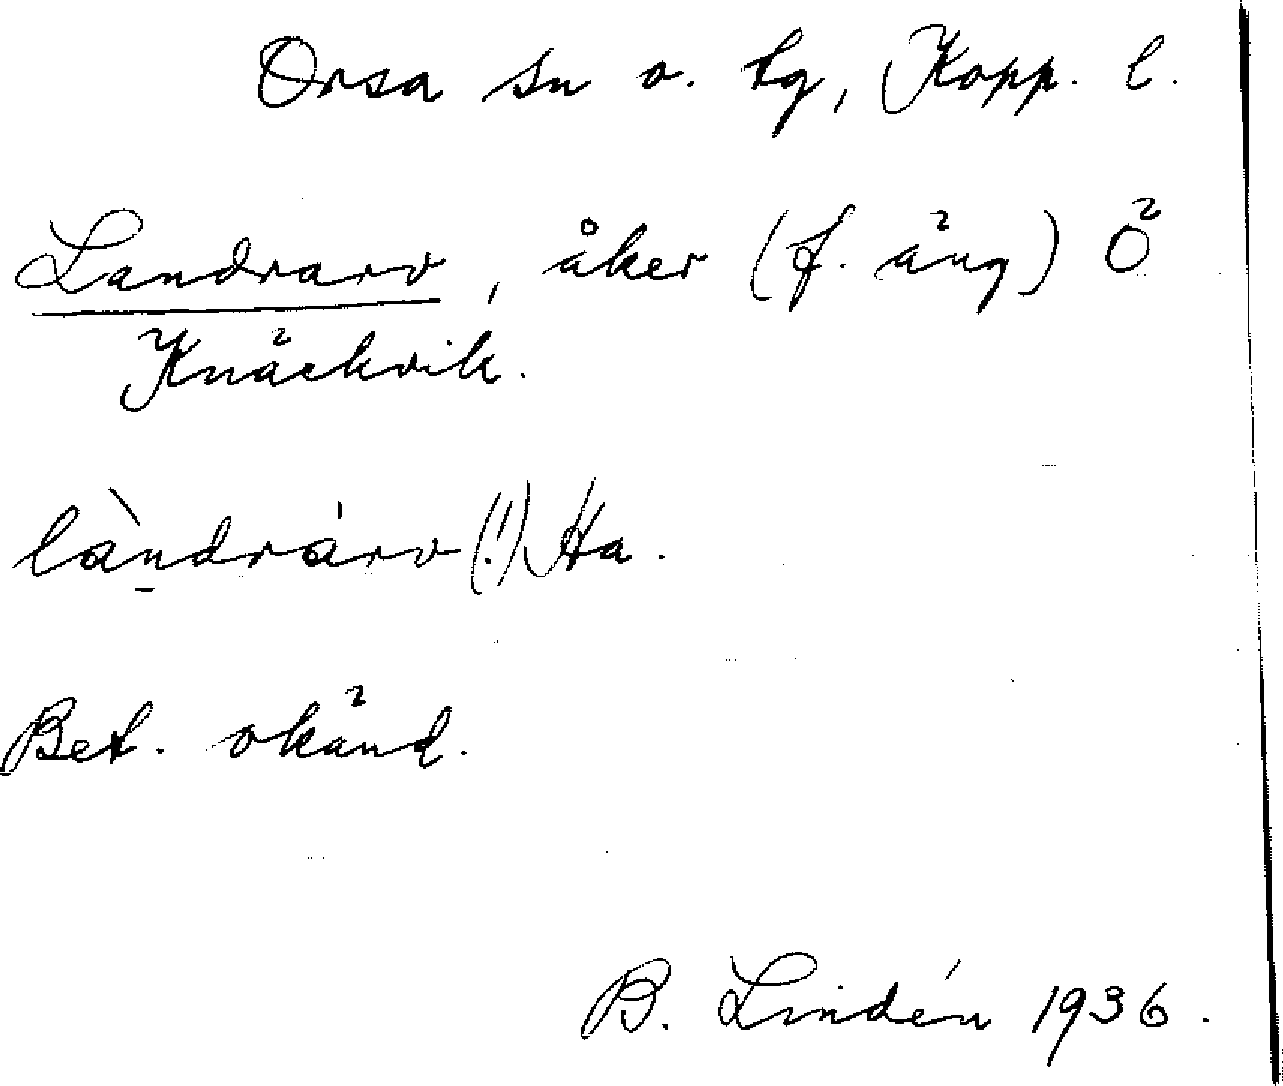 Orsa sn o. tg, Kopp. l.
Landrarv, åker (f. äng) Ö
Knäckvik.
làndrárv (!) Ha.
Bet. okänd.
B. Lindén 1936.